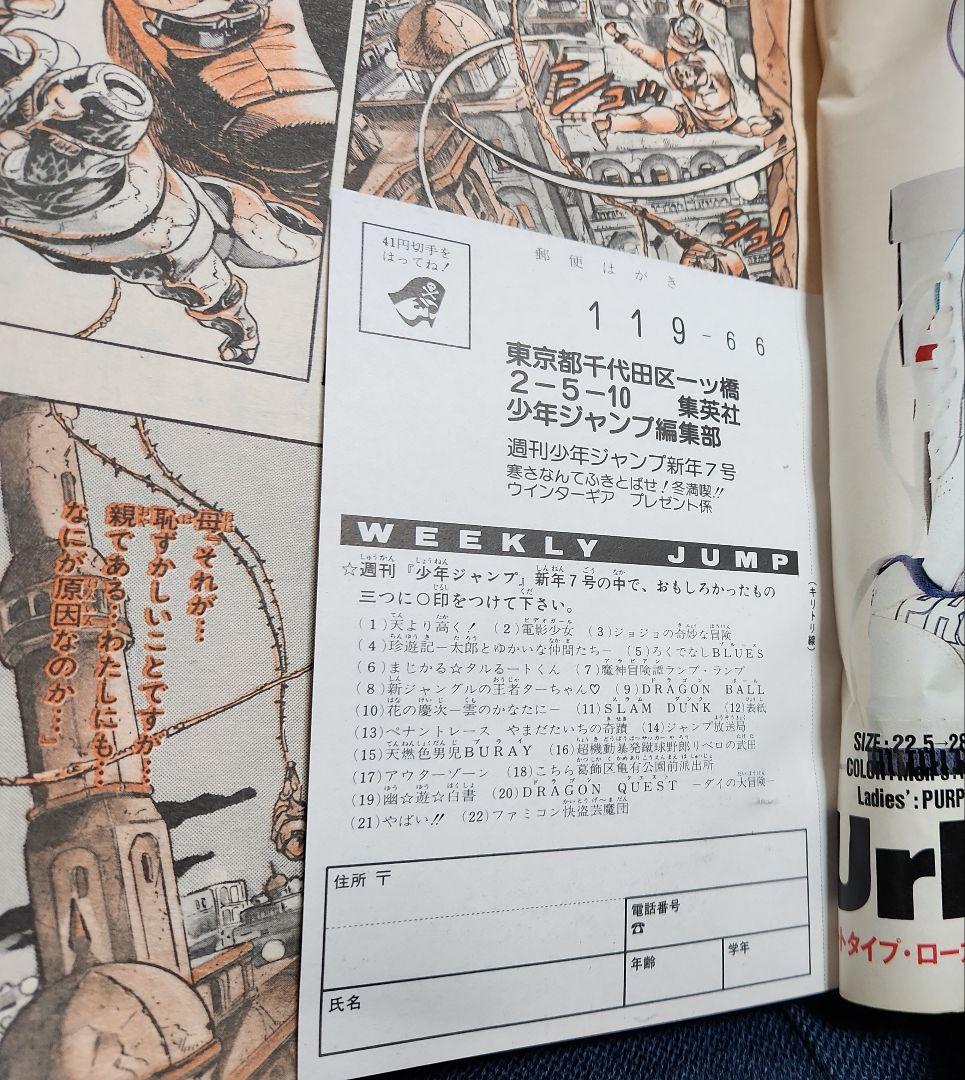 ジュ
ジュ!
41円切手を
はってね!
郵便はがき
119-66
東京都千代田区一ツ橋
2-5-10 集英社
少年ジャンプ編集部
週刊少年ジャンプ新年7号
寒さなんてふきとばせ!冬満喫!!
ウインターギア プレゼント係
WEEKLY JUMP
☆週刊『少年ジャンプ』新年7号の中で、おもしろかったもの
三つに○印をつけて下さい。
(1)天より高く! (2)電影少女 (3)ジョジョの奇妙な冒険
(4)珍遊記―太郎とゆかいな仲間たち― (5)ろくでなしBLUES
(6)まじかる☆タルるートくん (7)魔神冒険譚ランプ・ランプ
(8)新ジャングルの王者ターちゃん♡ (9)DRAGON BALL
(10)花の慶次―雲のかなたに― (11)SLAM DUNK (12)表紙
(13)ペナントレース やまだたいちの奇蹟 (14)ジャンプ放送局
(15)天燃色男児BURAY (16)超機動暴発蹴球野郎リベロの武田
(17)アウターゾーン (18)こちら葛飾区亀有公園前派出所
(19)幽☆遊☆白書 (20)DRAGON QUEST ―ダイの大冒険―
(21)やばい!! (22)ファミコン快盗芸魔団
(キリトリ線)
住所 〒
電話番号
☎
年齢
学年
氏名
母。それが…
恥ずかしいことですが……
親である…わたしにも…
なにが原因なのか…」
SIZE:22.5→28
Ladies':PURP
トタイプ・ロー